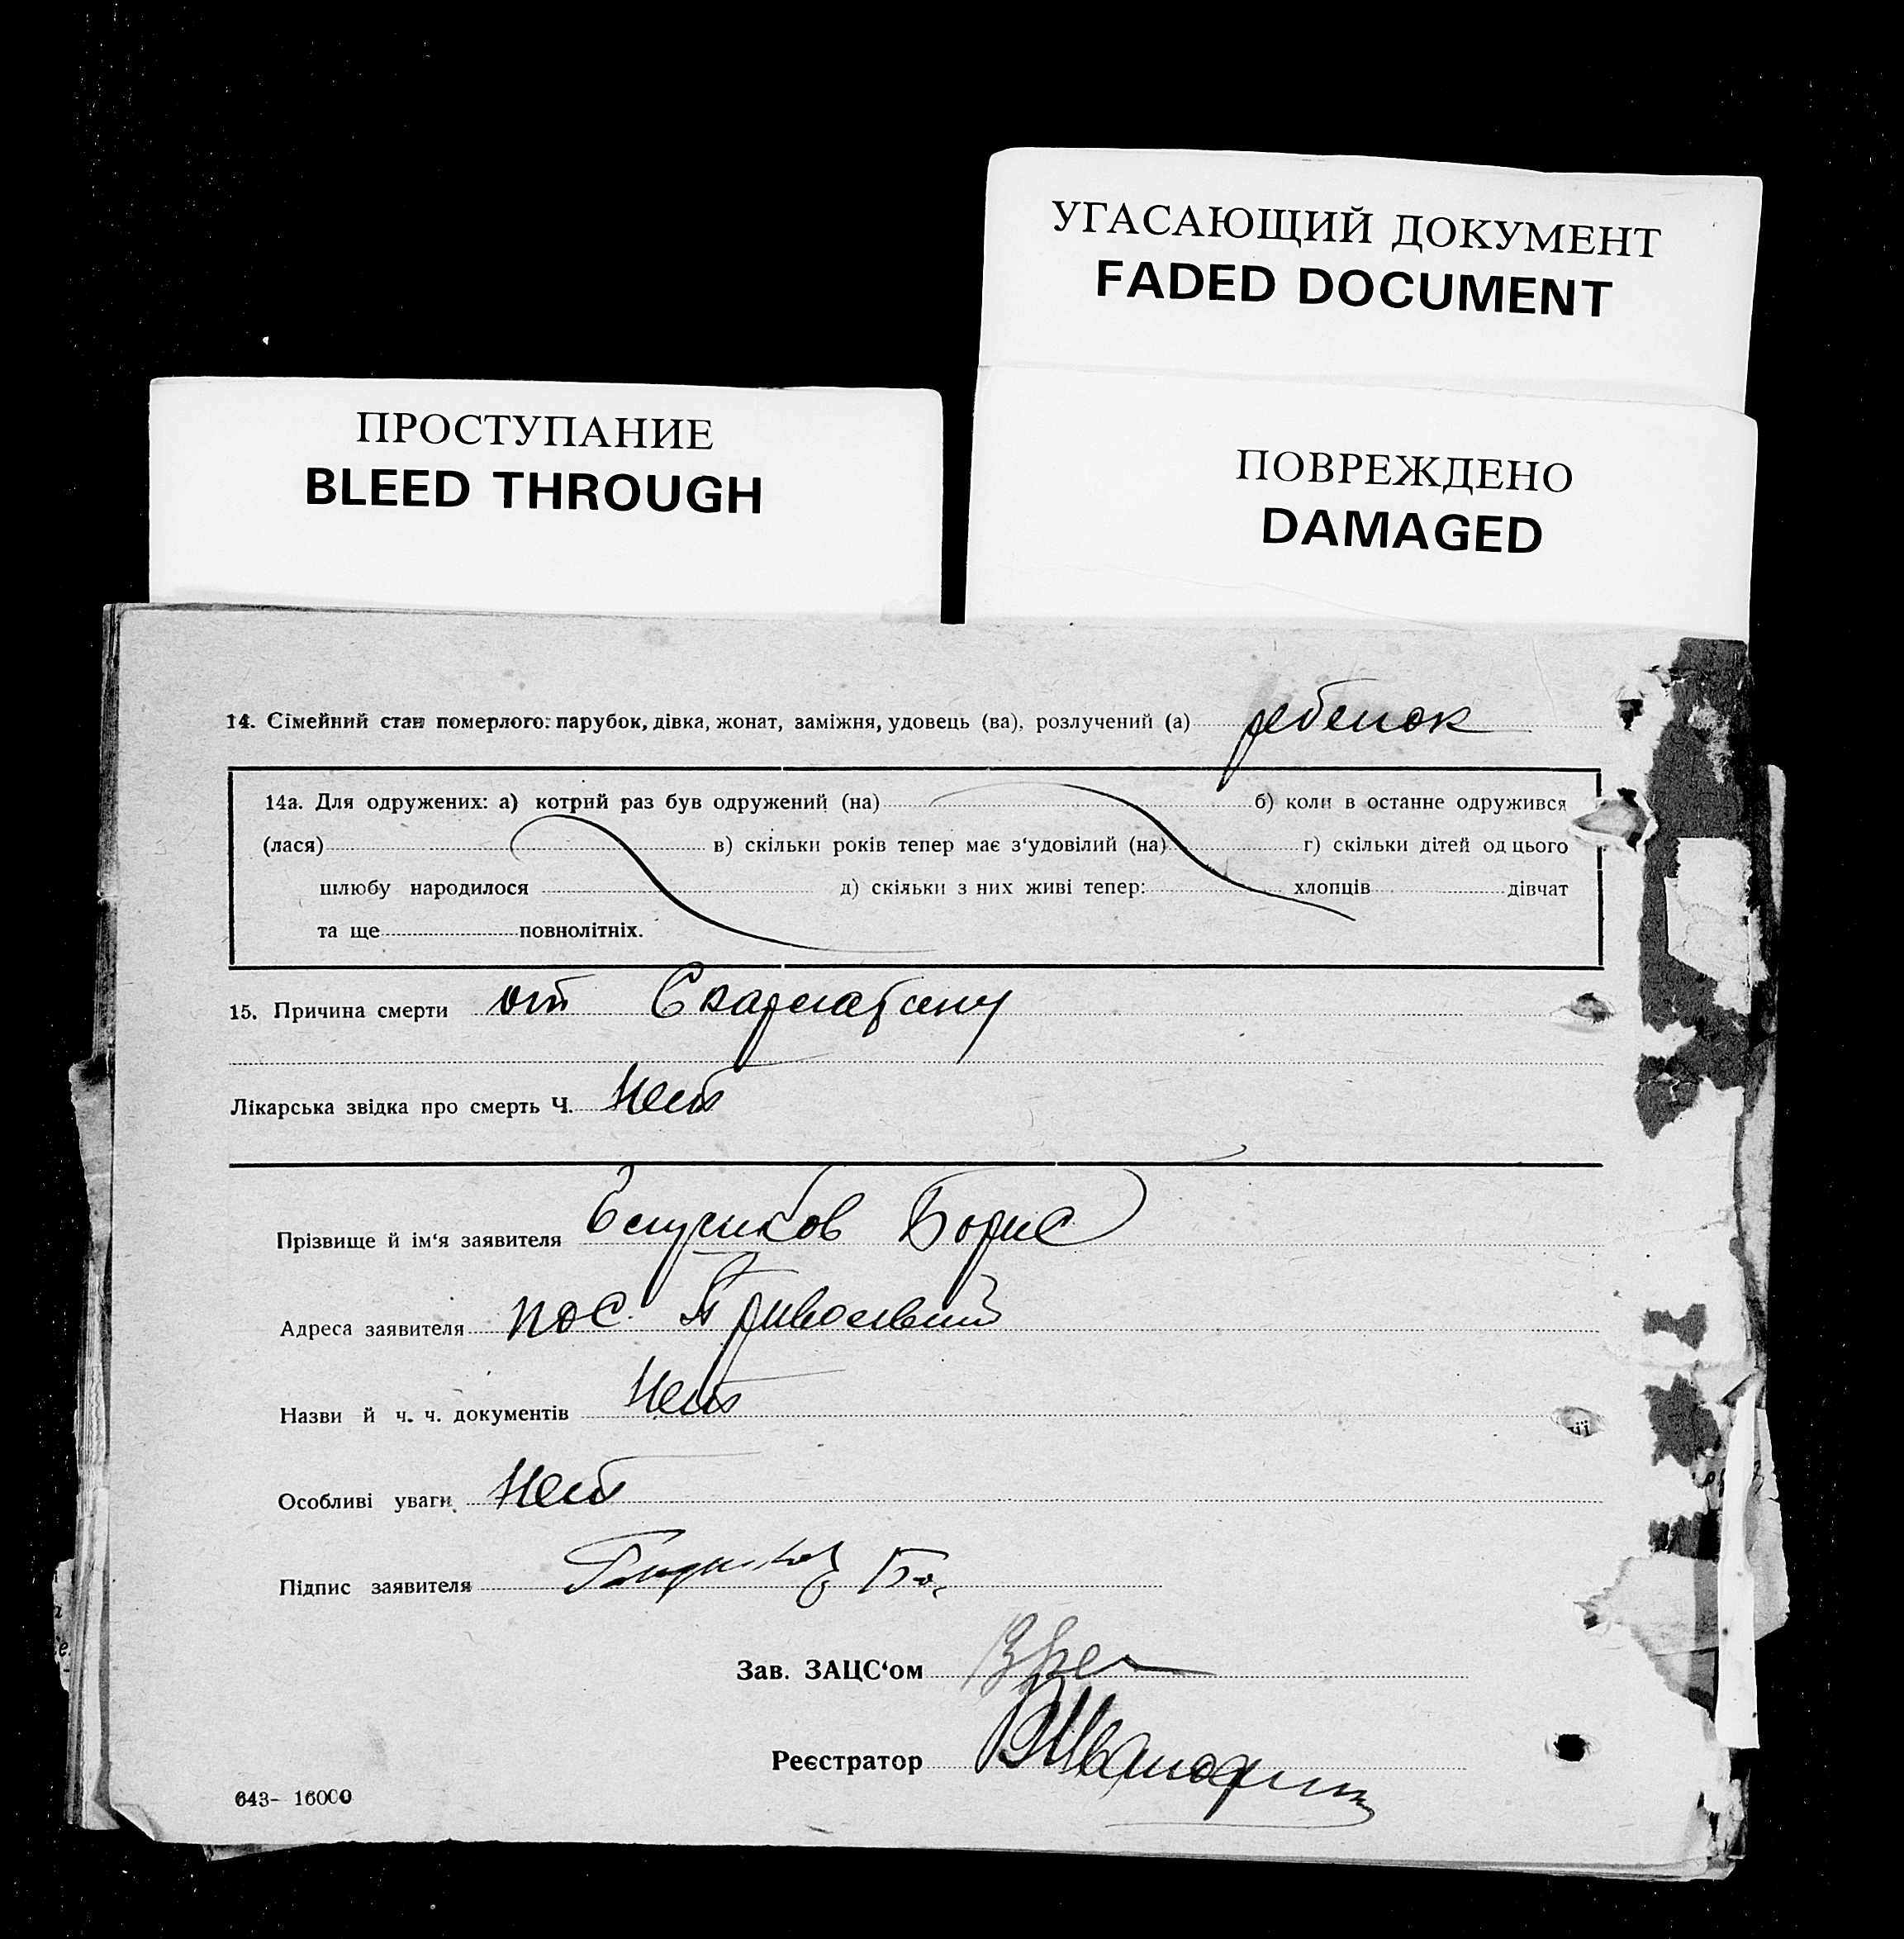 УГАСАЮЩИЙ ДОКУМЕНТ
FADED DOCUMENT
ПРОСТУПАНИЕ
BLEED THROUGH
ПОВРЕЖДЕНО
DAMAGED
14. Сімейний стан померлого: парубок, дівка, жонат, заміжня, удовець (ва), розлучений (а) ребенок
14а. Для одружених: а) котрий раз був одружений (на) б) коли в останне одружився
(лася) в) скільки років тепер має з‘удовілий (на) г) скільки дітей од цього
шлюбу народилося д) скільки з них живі тепер: хлопців дівчат
та ще повнолітніх.
15. Причина смерти от
Лікарська звідка про смерть Ч. Нет
Прізвище й ім‘я заявителя Борис
Адреса заявителя пос. Привольный
Назви й ч. ч. документів Нет
Особливі уваги Нет
Підпис заявителя
Зав. ЗАЦС‘ом
Реєстратор
643- 16000